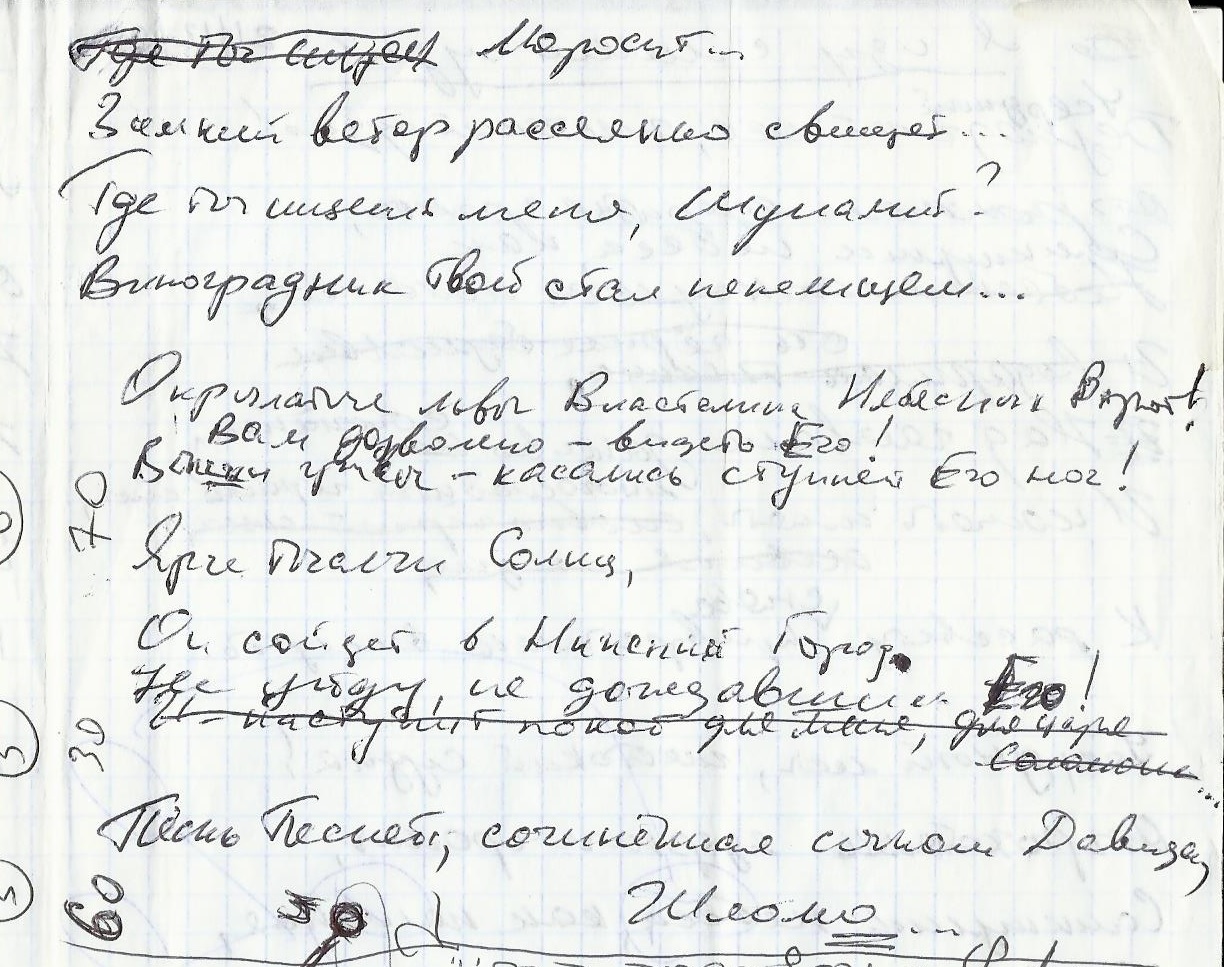 Где ты ищешь Моросит...
Зимний ветер рассеянно свищет...
Где ты ищешь меня, Шунамит?
Виноградник твой стал пепелищем...
Окрылатые львы Властелина Небесных Ворот!
Вам дозволено – видеть Его!
Ваши гривы – касались ступней Его ног!
70
Ярче тысячи Солнц,
Он сойдет в Нижний Город.
Не уйду, не дождавшись Его!
И наступит покой для меня, для царя
Соломона...
30
Песнь Песней, сочинённая сыном Давида,
Шломо...
60